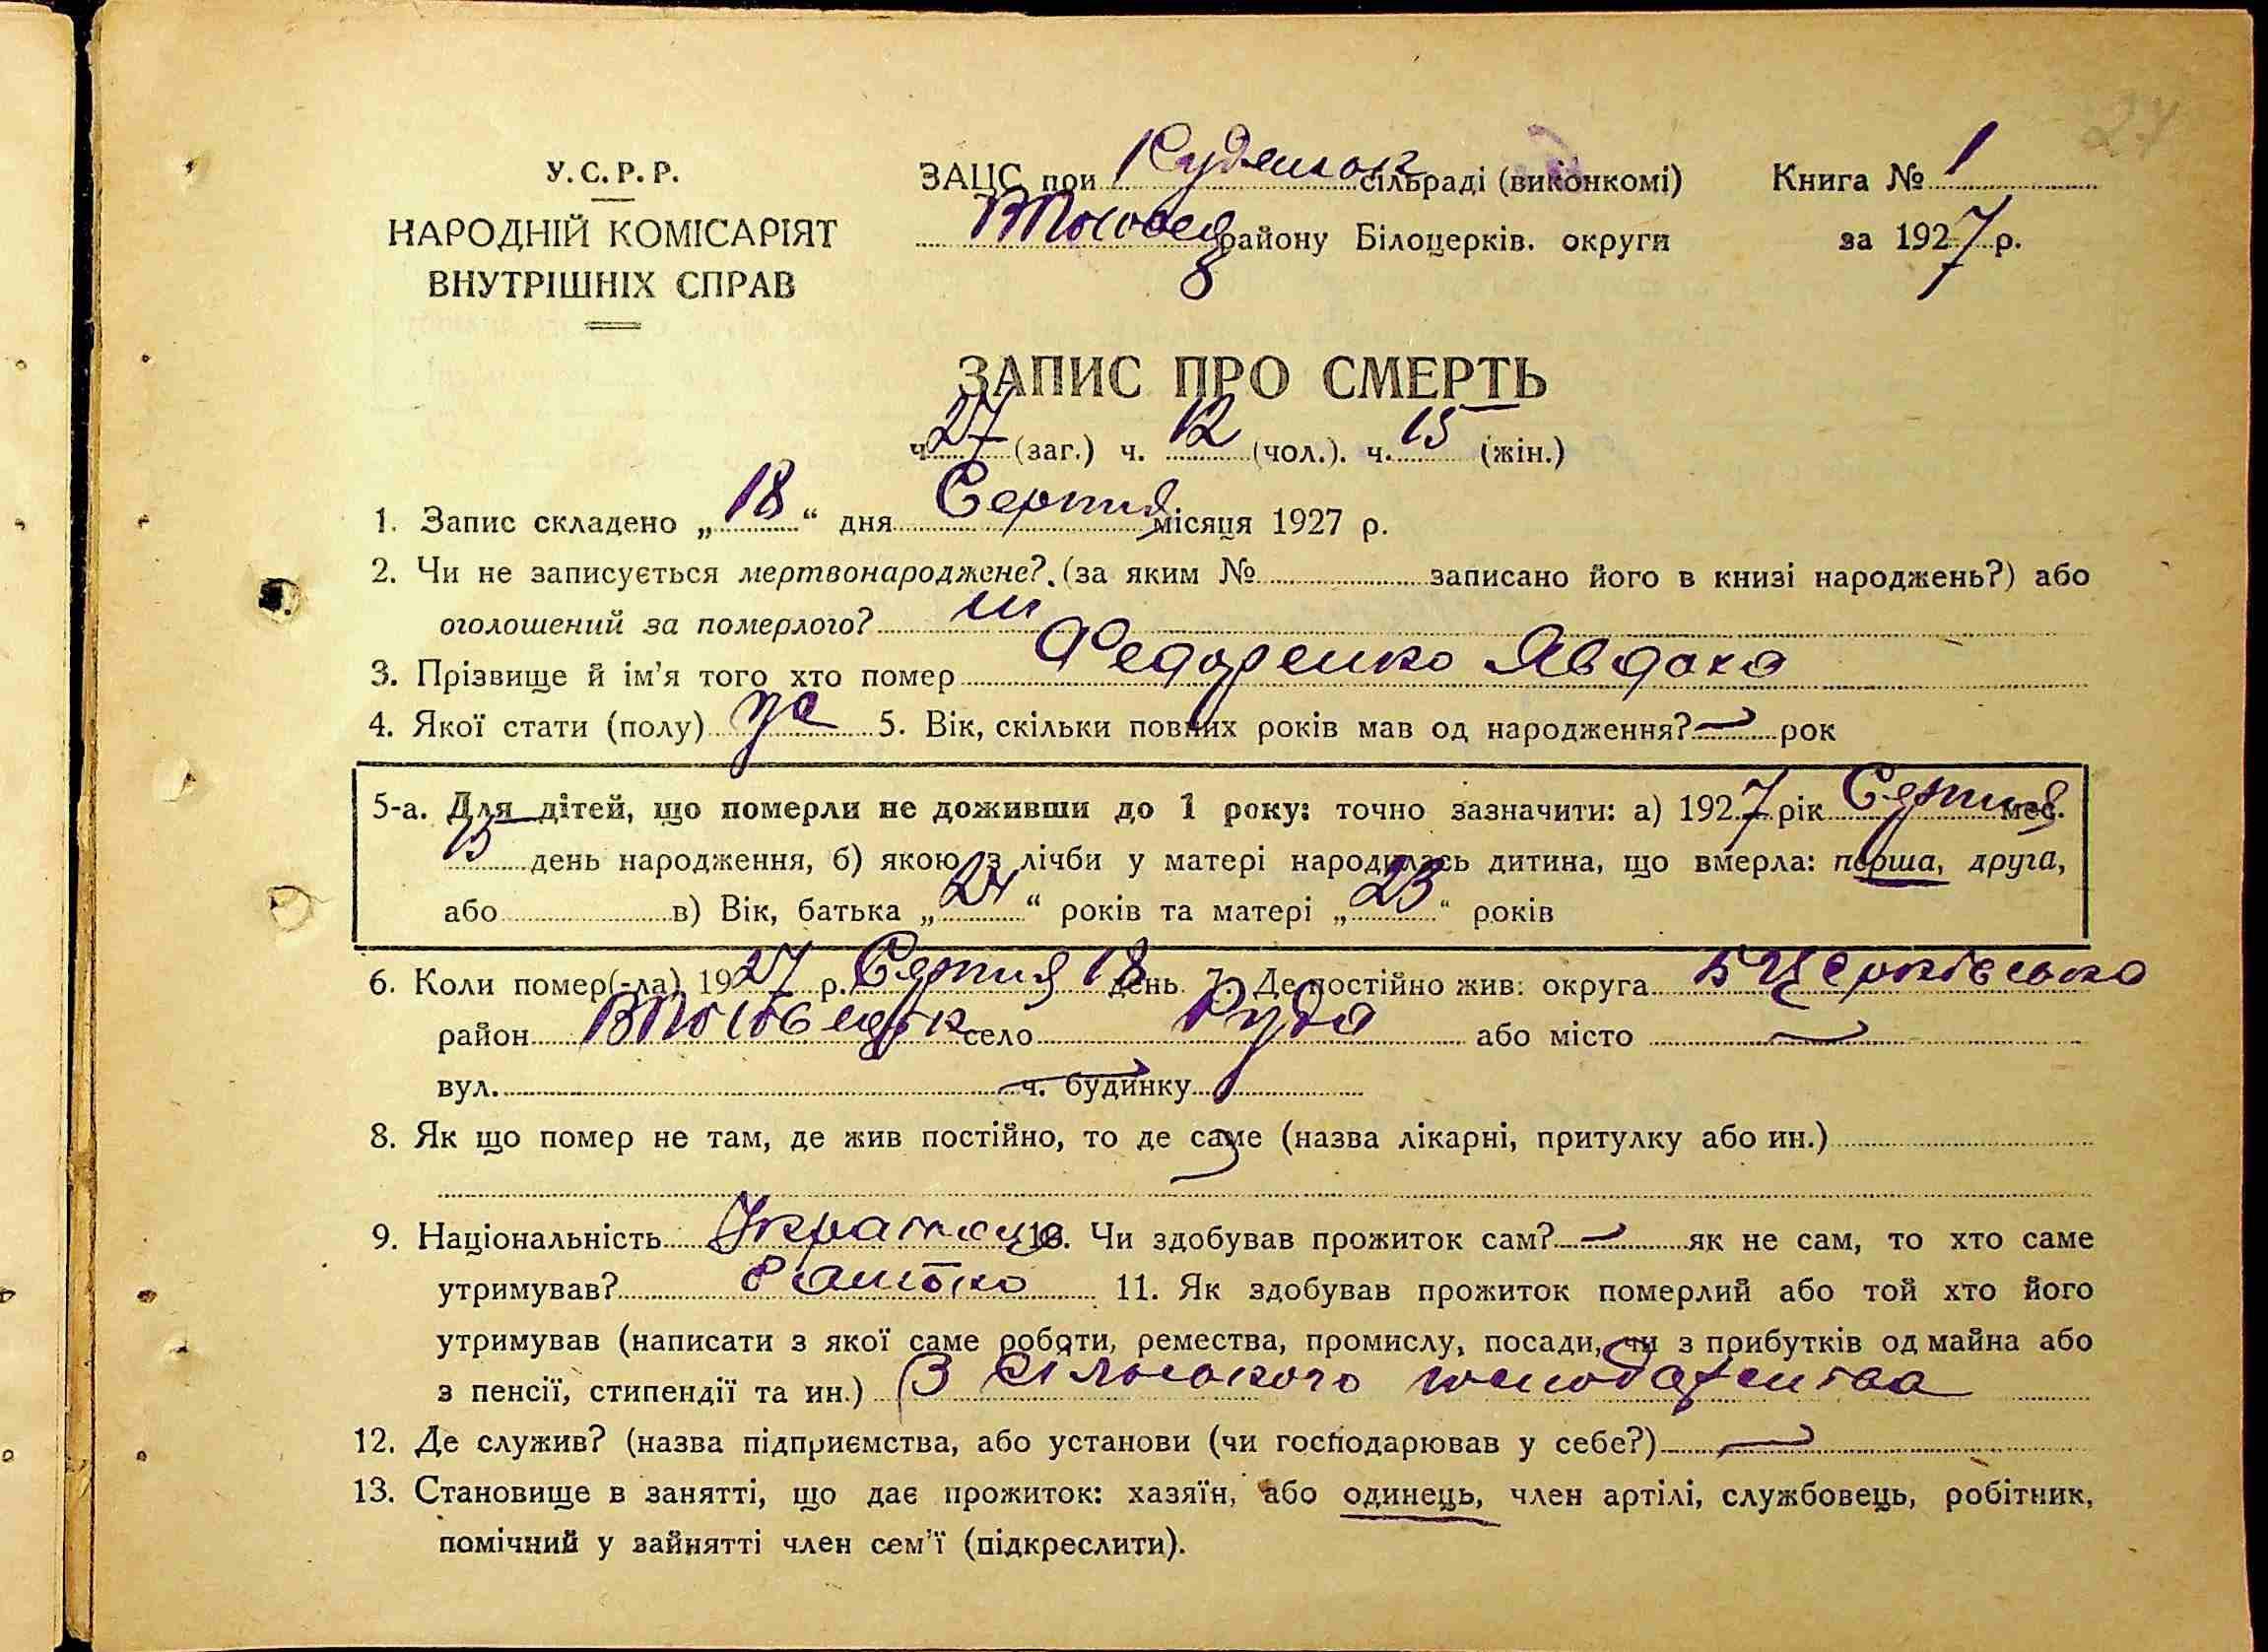 27
У.С.Р.Р.
НАРОДНІЙ КОМІСАРІЯТ
ВНУТРІШНІХ СПРАВ
ЗАЦС при сільраді (виконкомі)
району Білоцерків. округи
Книга № 1
за 1927 р.
ЗАПИС ПРО СМЕРТЬ
ч. 27 (заг.) ч. 12 (чол.). ч. 15 (жін.)
1. Запис складено „18“ дня Серпня місяця 1927 р.
2. Чи не записується мертвонароджене? (за яким № записано його в книзі народжень?) або
оголошений за померлого? ні
3. Прізвище й ім'я того хто помер Федоренко Явдоха
4. Якої стати (полу) 5. Вік, скільки повних років мав од народження? — рок
5-а. Для дітей, що померли не доживши до 1 року: точно зазначити: а) 1927 рік Серпня мес.
15 день народження, б) якою з лічби у матері народилась дитина, що вмерла: перша, друга,
або в) Вік, батька „24“ років та матері „23“ років
6. Коли помер(-ла) 1927 р. Серпня 18 день. 7. Де постійно жив: округа БЦерківсько
район село Руда або місто —
вул. ч. будинку
8. Як що помер не там, де жив постійно, то де саме (назва лікарні, притулку або ин.)
9. Національність 10. Чи здобував прожиток сам? — як не сам, то хто саме
утримував? батько 11. Як здобував прожиток померлий або той хто його
утримував (написати з якої саме роботи, ремества, промислу, посади, чи з прибутків од майна або
з пенсії, стипендії та ин.) З сільського
12. Де служив? (назва підприємства, або установи (чи господарював у себе?) —
13. Становище в занятті, що дає прожиток: хазяїн, або одинець, член артілі, службовець, робітник,
помічний у зайнятті член сем'ї (підкреслити).